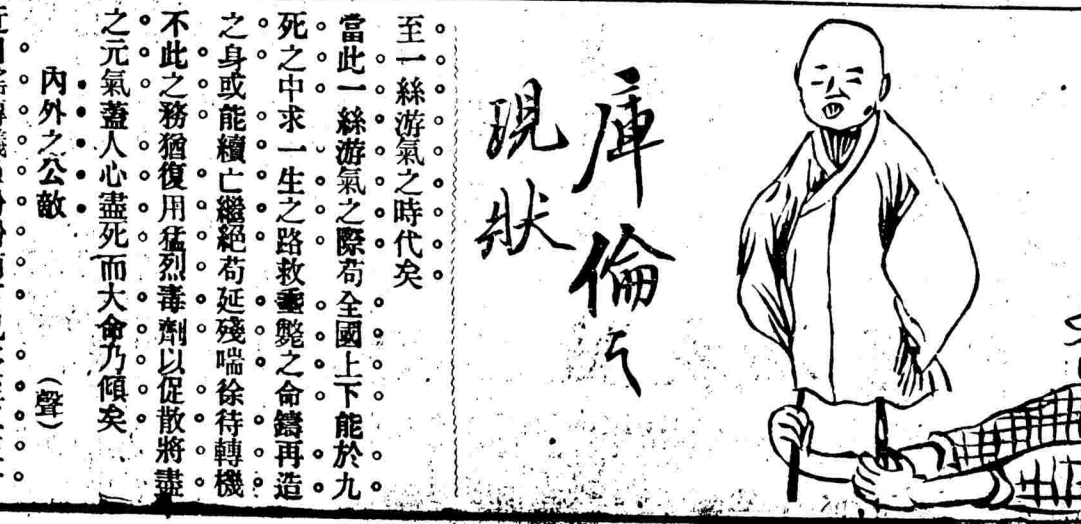 庫倫之
現狀
至一絲游氣之時代矣
當此一絲游氣之際苟全國上下能於九
死之中求一生之路救垂斃之命鑄再造
之身或能續亡繼絕苟延殘喘徐待轉機
不此之務猶復用猛烈毒劑以促散將盡
之元氣蓋人心盡死而大命乃傾矣
內外之公敵
（聲）